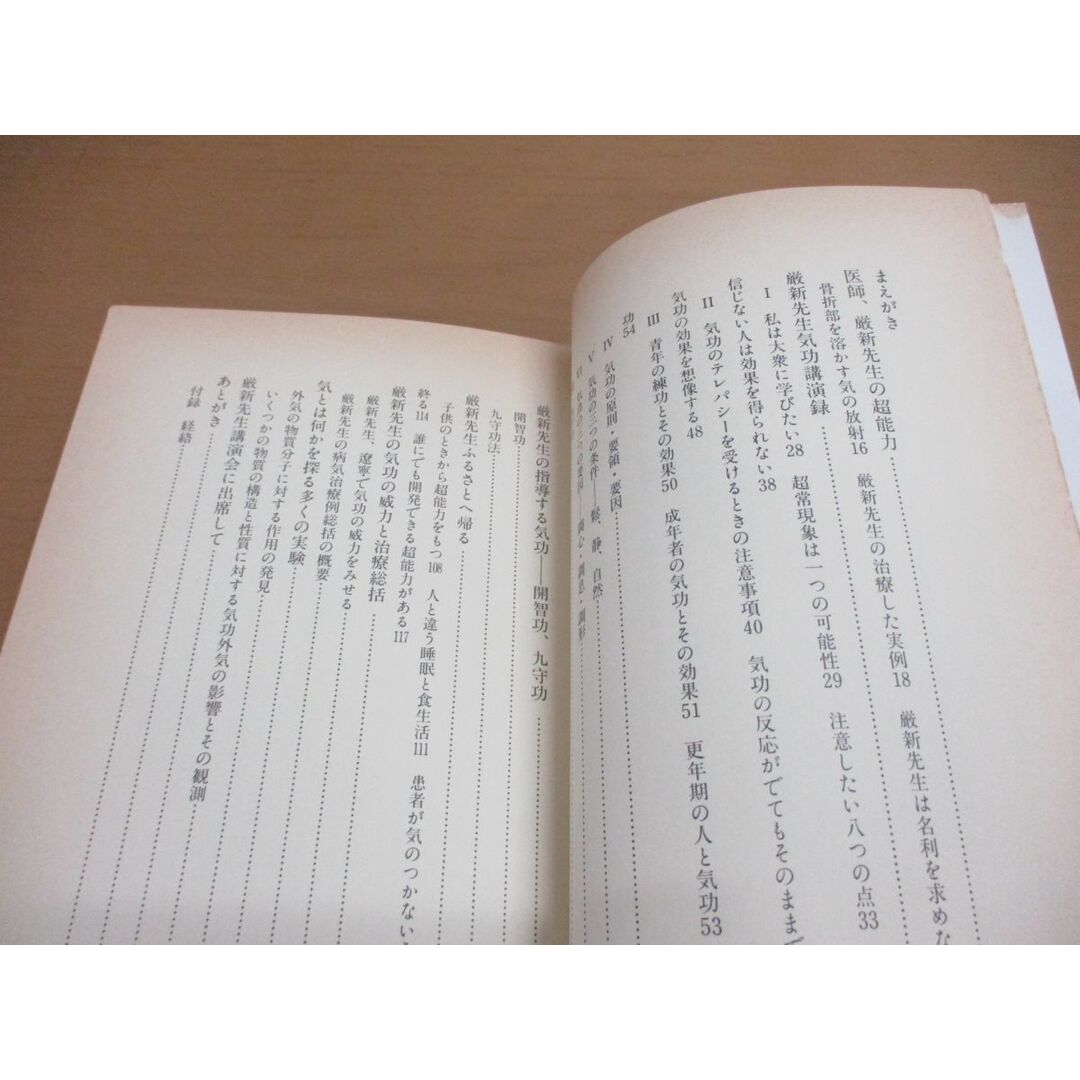 まえがき
医師、厳新先生の超能力
骨折部を溶かす気の放射16　厳新先生の治療した実例18　厳新先生は名利を求めな
厳新先生気功講演録
Ⅰ　私は大衆に学びたい28　超常現象は一つの可能性29　注意したい八つの点33
信じない人は効果を得られない38
Ⅱ　気功のテレパシーを受けるときの注意事項40　気功の反応がでてもそのままで
気功の効果を想像する48
Ⅲ　青年の練功とその効果50　成年者の気功とその効果51　更年期の人と気功53
功54
Ⅳ　気功の原則・要領・要因
Ⅴ　気功の三つの条件――鬆、静、自然
Ⅵ　気功の三つの要因――調心・調息・調形
厳新先生の指導する気功――開智功、九守功
開智功
九守功法
厳新先生ふるさとへ帰る
子供のときから超能力をもつ108　人と違う睡眠と食生活111　患者が気のつかない
終る114　誰にでも開発できる超能力がある117
厳新先生の気功の威力と治療総括
厳新先生、遼寧で気功の威力をみせる
厳新先生の病気治療例総括の概要
気とは何かを探る多くの実験
外気の物質分子に対する作用の発見
いくつかの物質の構造と性質に対する気功外気の影響とその観測
厳新先生講演会に出席して
あとがき
付録　経絡